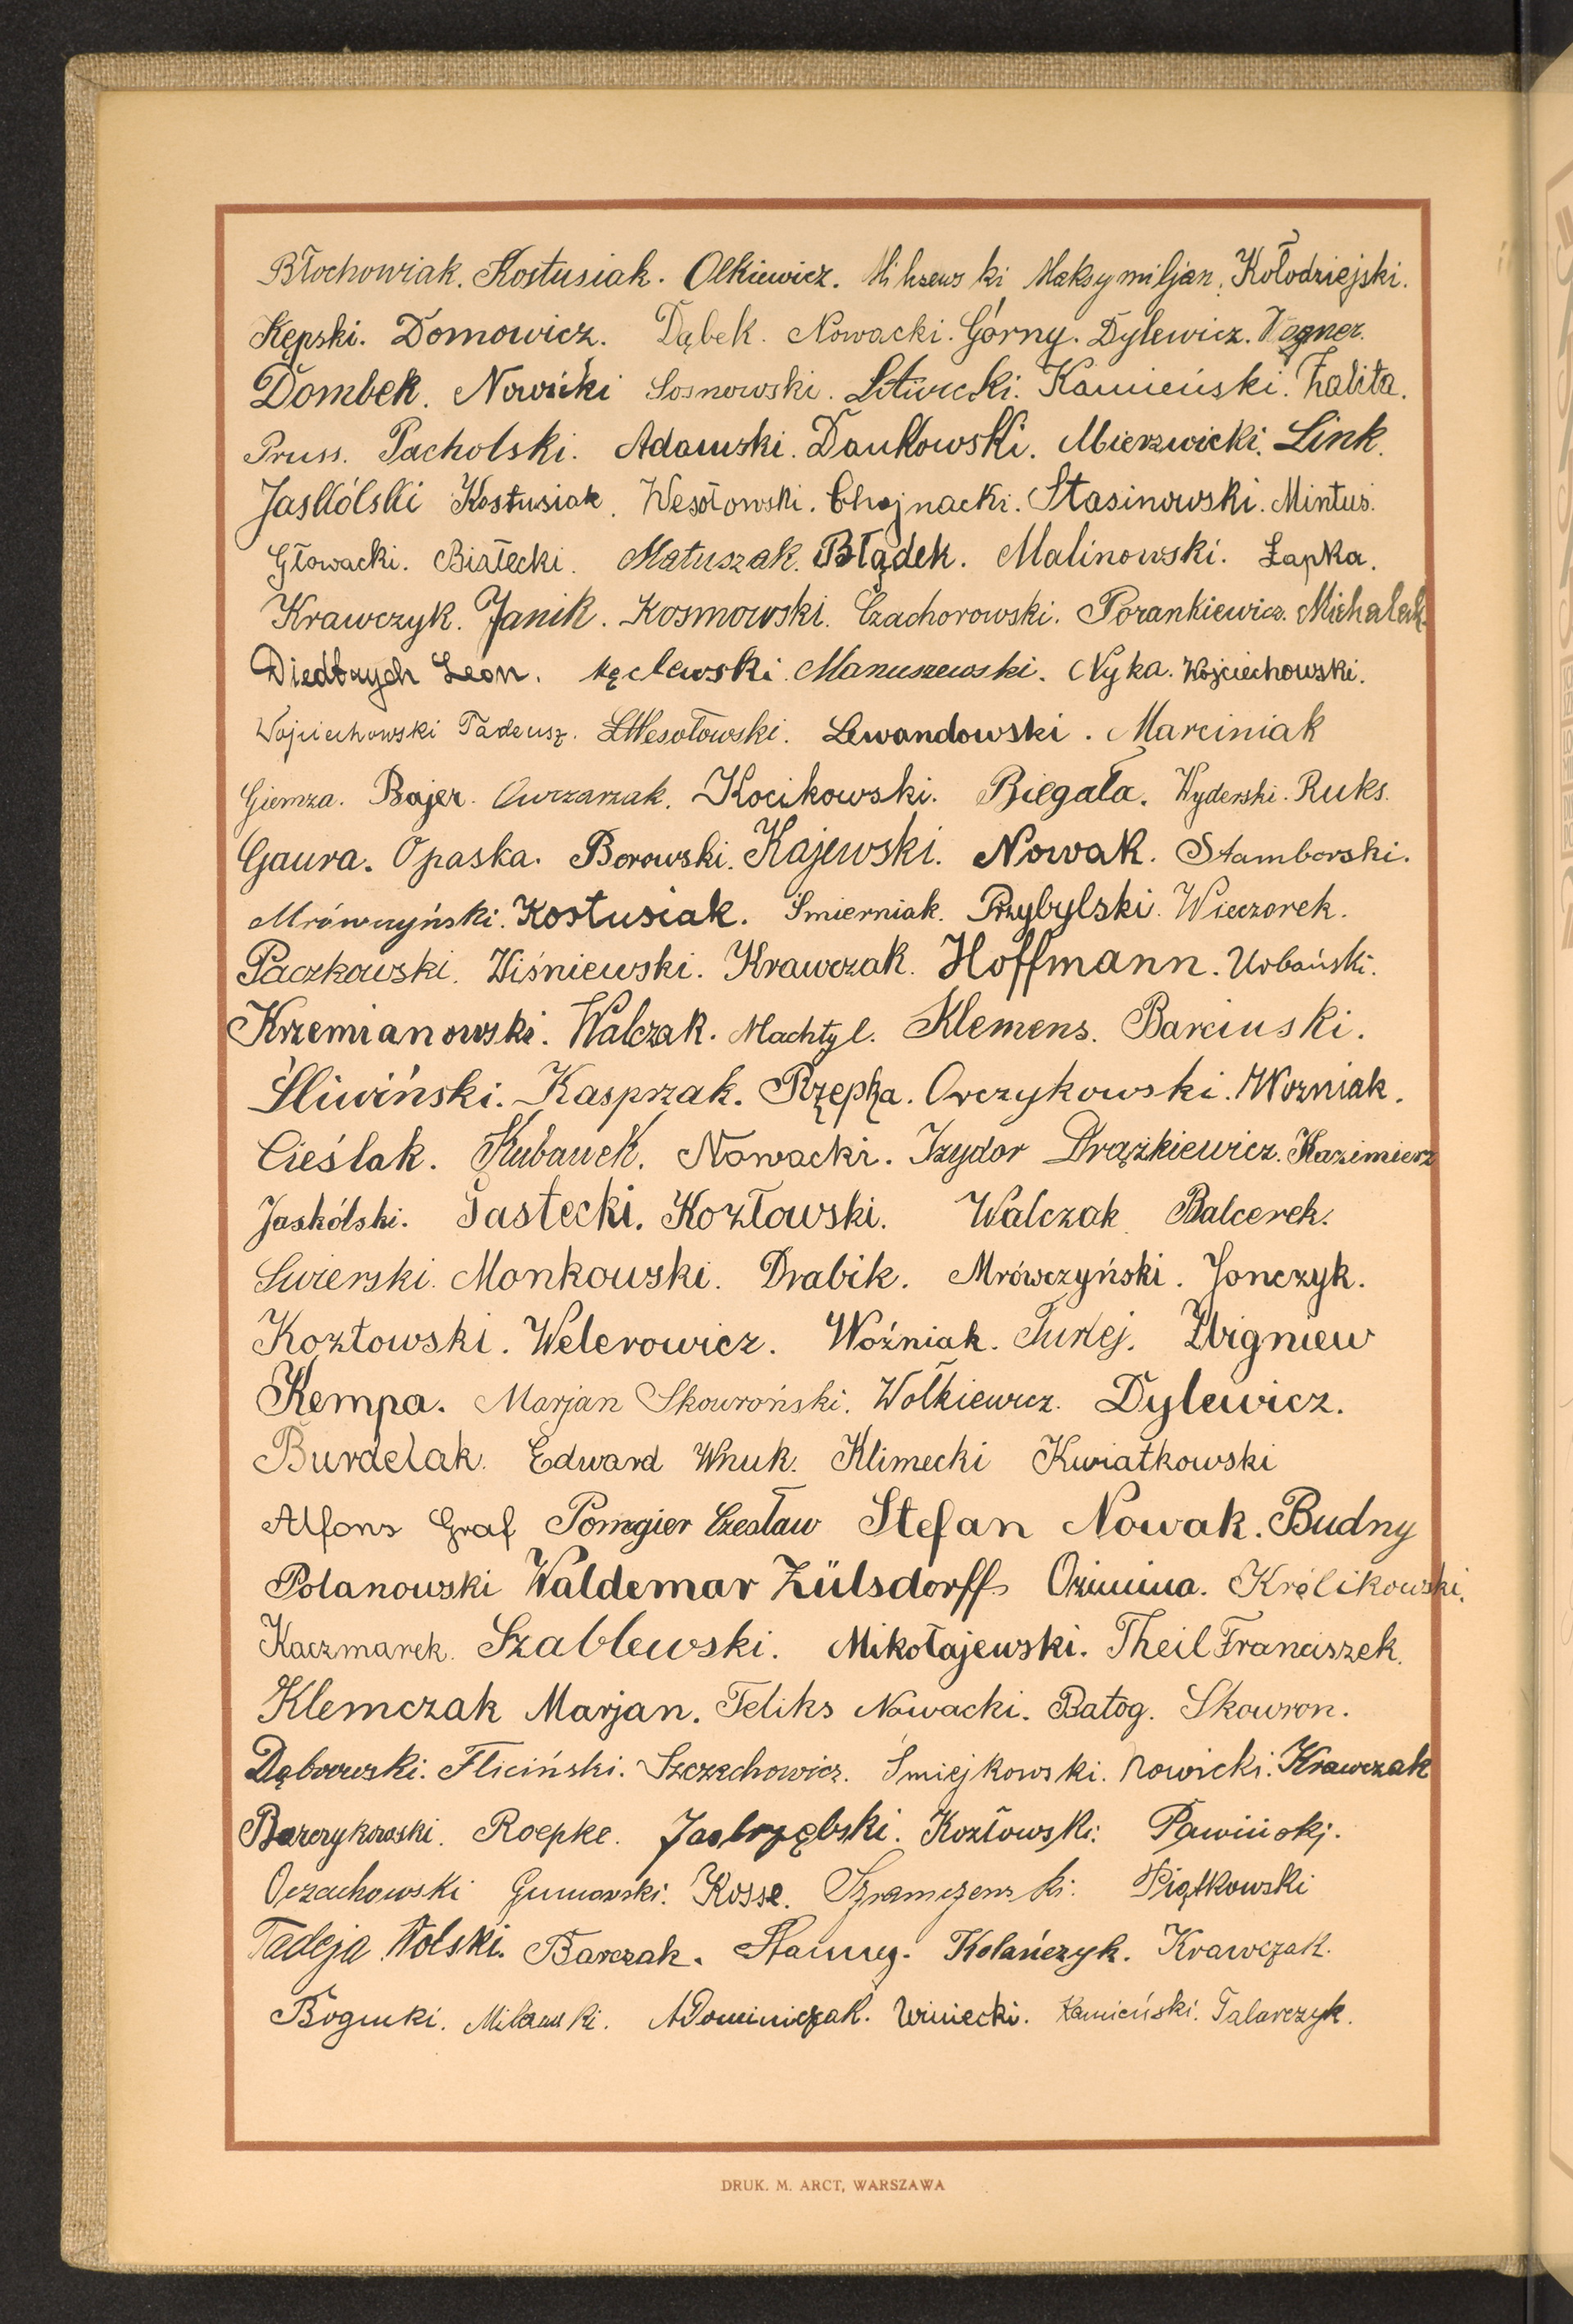 Błochowiak. Kostusiak. Olkiewicz. Maksymiljan. Kołodziejski.
Kępski. Domowicz. Dąbek. Nowacki. Górny. Dylewicz. Wagner.
Dombek. Nowicki Sosnowski. Litwicki. Kamieński. Zalita.
Pruss. Pacholski. Adamski. Dankowski. Mierzwicki. Link.
Jaskólski Kostusiak. Wesołowski. Chojnacki. Stasinowski. Mintus.
Głowacki. Białecki. Matuszak. Błądek. Malinowski. Łapka.
Krawczyk. Janik. Kosmowski. Czachorowski. Porankiewicz. Michalak.
Diedbrych Leon. Męclewski. Manuszewski. Nyka. Wojciechowski.
Wojciechowski Tadeusz. Wesołowski. Lewandowski. Marciniak
Giemza. Bajer. Owczarzak. Kocikowski. Biegała. Wyderski. Ruks.
Gaura. Opaska. Borowski. Kajewski. Nowak. Stamborski.
Mrówczyński. Kostusiak. Śmierniak. Przybylski. Wieczorek.
Paczkowski. Wiśniewski. Krawczak. Hoffmann. Urbański.
Krzemianowski. Walczak. Machtyl. Klemens. Barciuski.
Śliwiński. Kasprzak. Rzępka. Owczykowski. Wozniak.
Cieślak. Kubawek. Nowacki. Izydor Drążkiewicz. Kazimierz
Jaskólski. Jastecki. Kozłowski. Walczak Balcerek.
Swierski. Monkowski. Drabik. Mrówczyński. Jonczyk.
Kozłowski. Welerowicz. Woźniak. Turkej. Zbigniew
Kempa. Marjan Skowroński. Wołkiewicz. Dylewicz.
Burdelak. Edward Wnuk. Klimecki Kwiatkowski
Alfons Graf Pomgier Czesław Stefan Nowak. Budny
Polanowski Waldemar Zülsdorff Ozimina. Królikowski.
Kaczmarek. Szablewski. Mikołajewski. Theil Franciszek.
Klemczak Marjan. Feliks Nowacki. Batog. Skowron.
Dąbrowski. Fliciński. Szczechowicz. Śmiejkowski. Nowicki. Krawczak
Barczykowski. Roepke. Jastrzębski. Kozłowski. Pawiński.
Oczachowski Gumowski. Kosse. Szramczewski. Piątkowski
Tadeja Wolski. Barczak. Kolańczyk. Krawczak.
Bogucki. Milczewski. A Dominiczak. Winiecki. Kamieński. Talarczyk.
DRUK. M. ARCT, WARSZAWA